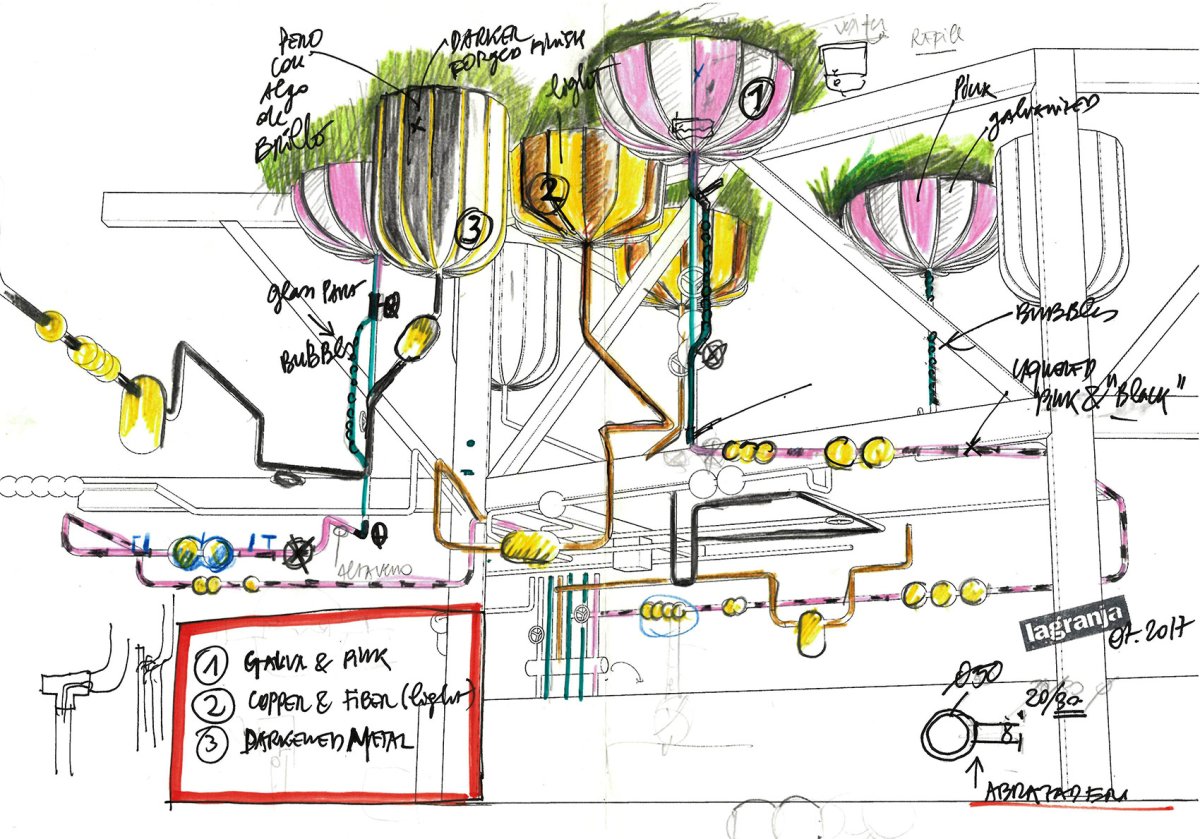 PERO
CON
Algo
de
Brillo
DARKER
FORGED FINISH
light
1
Pink
galvanized
2
3
glass PAINT
BUBBLES
BUBBLES
LAQUERED
PINK & "Black"
ALTAVENO
lagranja
07.2017
1 GALVA & PINK
2 COPPER & FIBER (light)
3 DARKENED METAL
Ø50
20/80
8
ABRAZADERA